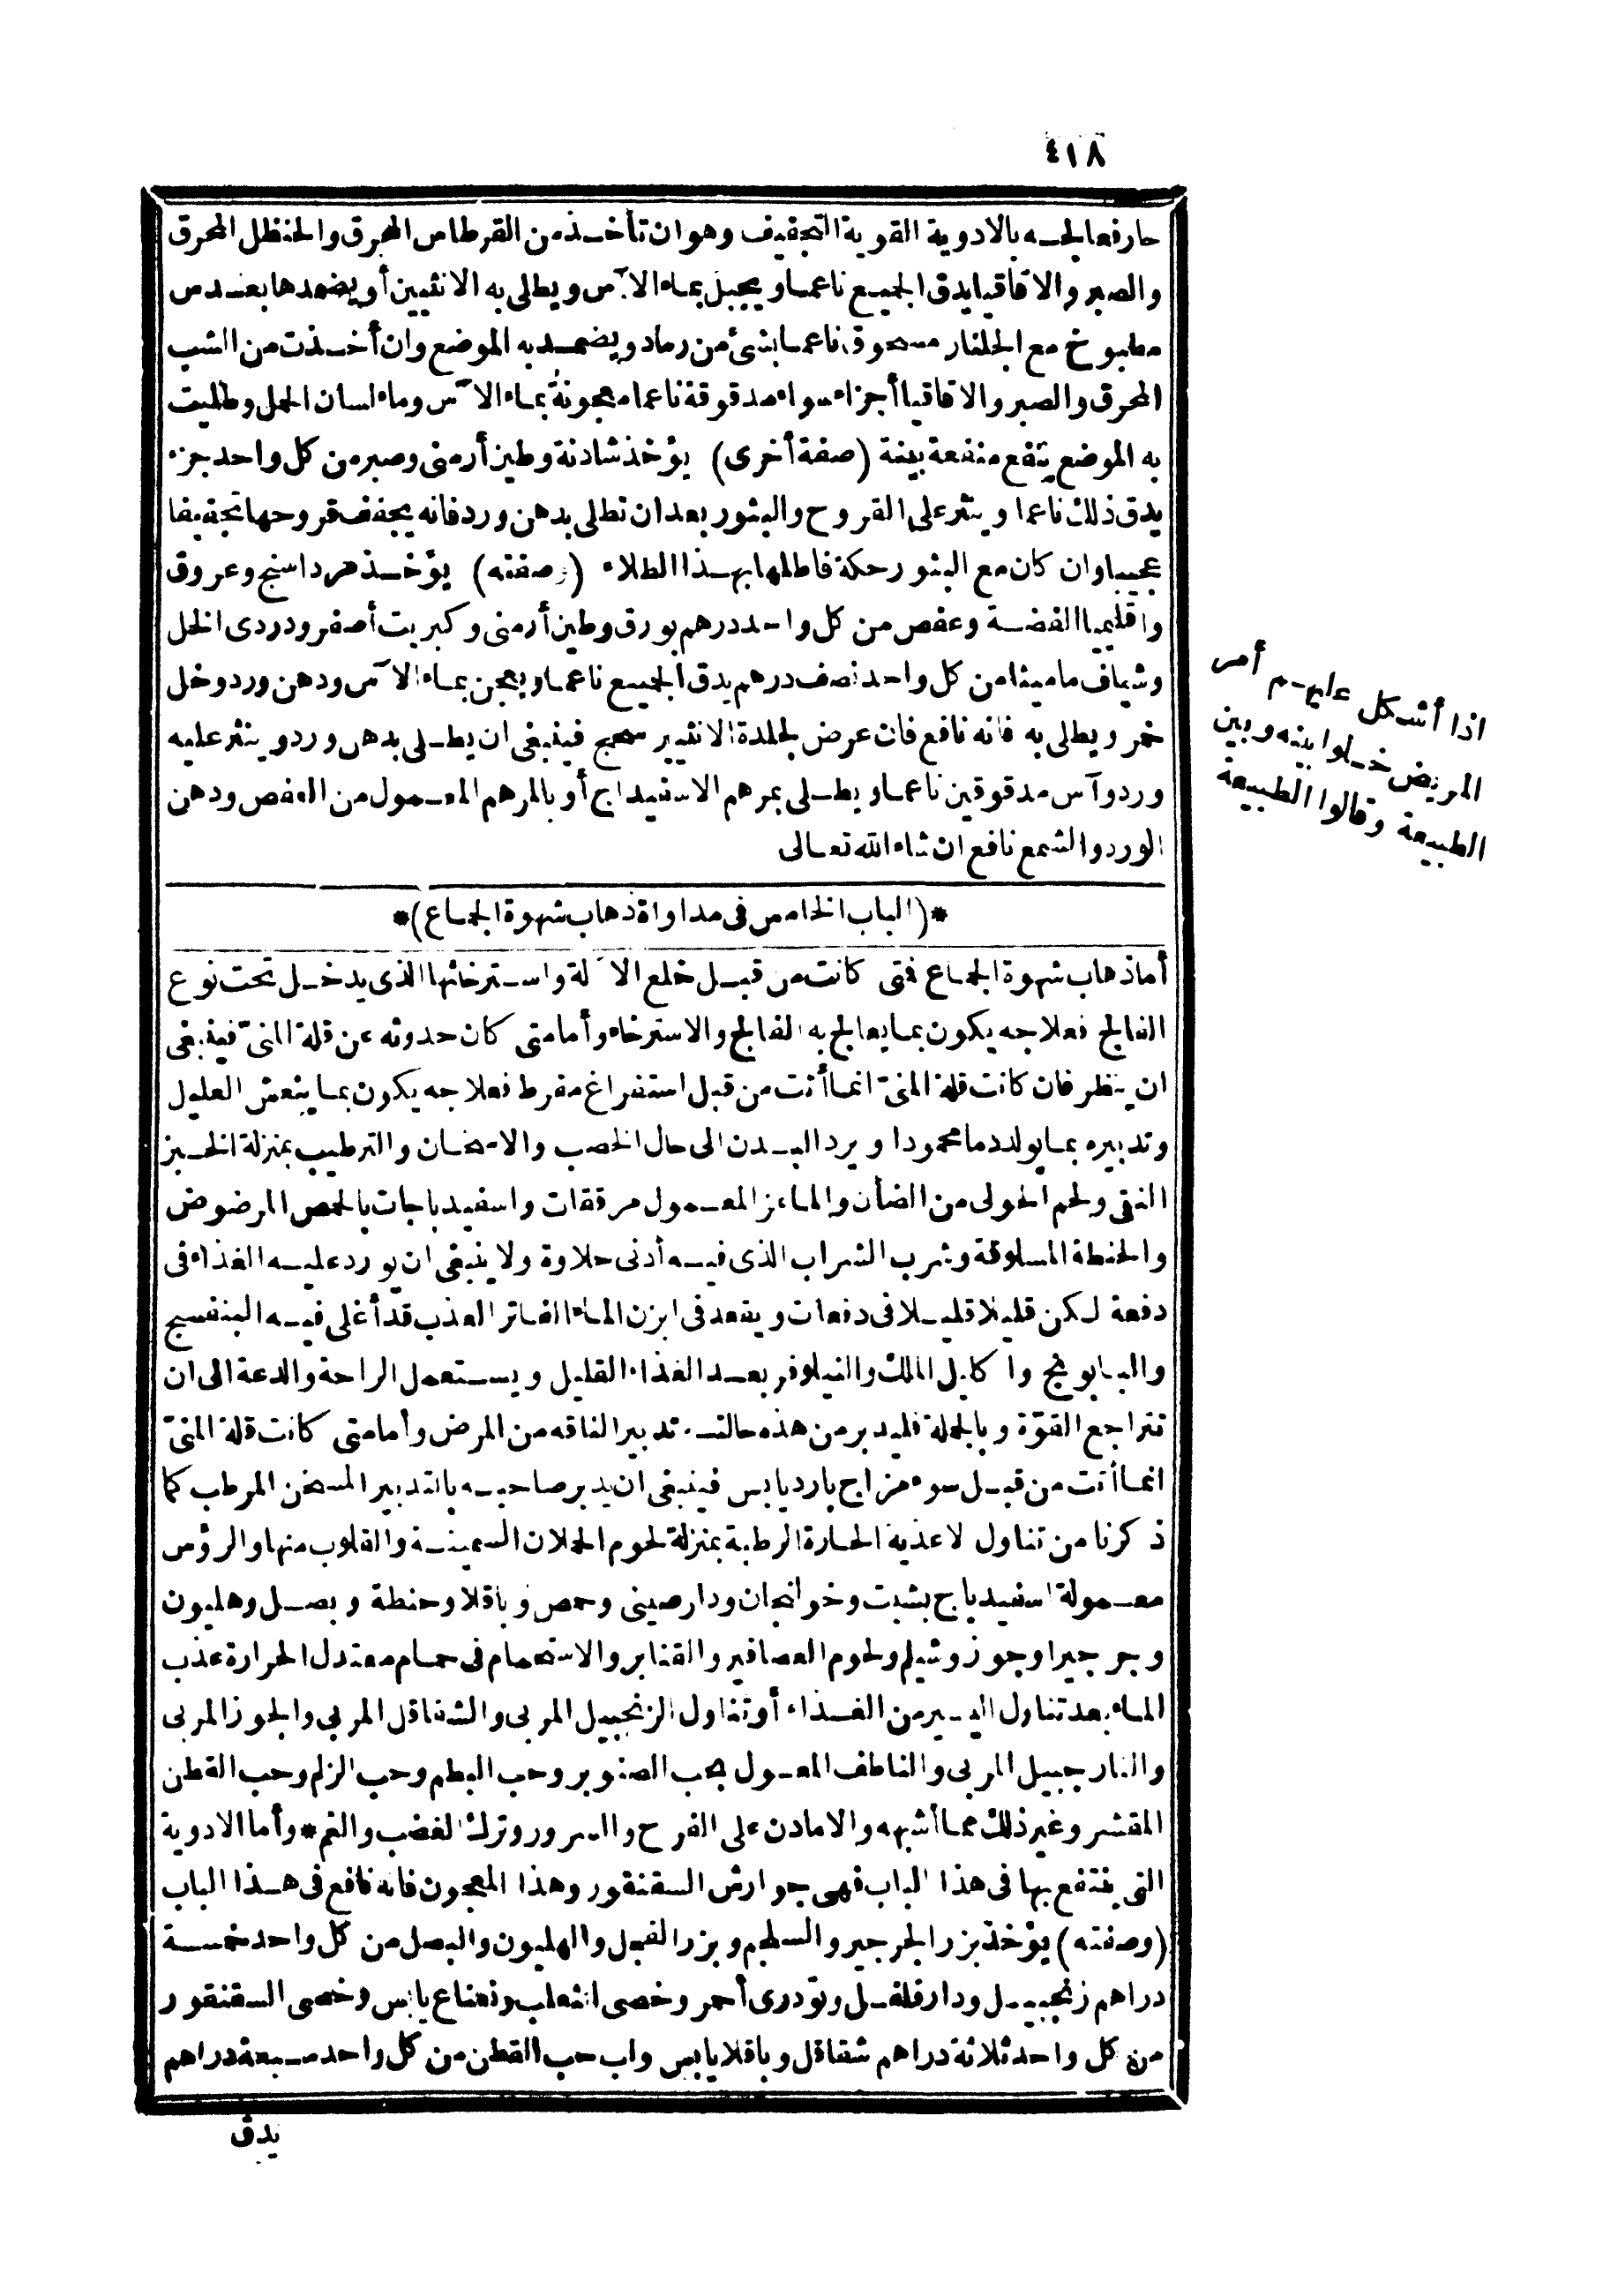 ٤١٨
حار فعالجه بالادوية القوية التجفيف وهو ان تأخذ من القرطاس المحرق والحنظل المحرق
والصبر والاقاقيا يدق الجميع ناعما ويجبل بماء الآس ويطلى به الانثيين أو يضمدها بعدس
مطبوخ مع الجلنار مسحوق ناعما بشئ من رماد ويضمد به الموضع وان أخذت من الشب
المحرق والصبر والاقاقيا أجزاء سواء مدقوقة ناعما معجونة بماء الآس وماء لسان الحمل وطليت
به الموضع ينفع منفعة بينة (صفة أخرى) يؤخذ شادنة وطين أرمنى وصبر من كل واحد جزء
يدق ذلك ناعما وينثر على القروح والبثور بعد ان تطلى بدهن ورد فانه يجفف قروحها تجفيفا
عجيبا وان كان مع البثور حكة فاطلها بهذا الطلاء (وصفته) يؤخذ مرداسنج وعروق
واقليميا الفضة وعفص من كل واحد درهم بورق وطين أرمنى وكبريت أصفر ودردى الخل
وشياف ماميثا من كل واحد نصف درهم يدق الجميع ناعما ويعجن بماء الآس ودهن ورد وخل
خمر ويطلى به فانه نافع فان عرض لجلدة الانثيين سحج فينبغى ان يطلى بدهن ورد وينثر عليه
ورد وآس مدقوقين ناعما ويطلى بمرهم الاسفيداج أو بالمرهم المعمول من العفص ودهن
الورد والشمع نافع ان شاء الله تعالى
*(الباب الخامس فى مداواة ذهاب شهوة الجماع)*
أما ذهاب شهوة الجماع فمتى كانت من قبل خلع الآلة واسترخائها الذى يدخل تحت نوع
الفالج فعلاجه يكون بما يعالج به الفالج والاسترخاء وأما متى كان حدوثه عن قلة المنىّ فينبغى
ان ينظر فان كانت قلة المنىّ انما أتت من قبل استفراغ مفرط فعلاجه يكون بما ينعش العليل
وتدبيره بما يولد دما محمودا ويرد البدن الى حال الخصب والاسخان والترطيب بمنزلة الخبز
النقى ولحم الحولى من الضأن والماعز المعمول مرققات واسفيدباجات بالحمص المرضوض
والحنطة المسلوقة وشرب الشراب الذى فيه أدنى حلاوة ولا ينبغى ان يورد عليه الغذاء فى
دفعة لكن قليلا قليلا فى دفعات ويقعد فى ابزن الماء الفاتر العذب قد أغلى فيه البنفسج
والبابونج واكليل الملك والنيلوفر بعد الغذاء القليل ويستعمل الراحة والدعة الى ان
تتراجع القوّة وبالجملة فليدبر من هذه حالته تدبير الناقه من المرض وأما متى كانت قلة المنىّ
انما أتت من قبل سوء مزاج بارد يابس فينبغى ان يدبر صاحبه بالتدبير المسخن المرطب كما
ذكرنا من تناول لاغذية الحارة الرطبة بمنزلة لحوم الحملان السمينة والقلوب منها والرؤس
معمولة اسفيدباج بشبت وخولنجان ودارصينى وحمص وباقلا وحنطة وبصل وهليون
وجرجيرا وجوز وشيلم ولحوم العصافير والقنابر والاستحمام فى حمام معتدل الحرارة عذب
الماء بعد تناول اليسير من الغذاء أو تناول الزنجبيل المربى والشقاقل المربى والجوز المربى
والنارجبيل المربى والناطف المعمول بحب الصنوبر وحب البطم وحب الزلم وحب القطن
المقشر وغير ذلك مما أشبهه والامادن على الفرح والسرور وترك الغضب والغم * وأما الادوية
التى ينتفع بها فى هذا الباب فهى جوارش السقنقور وهذا المعجون فانه نافع فى هذا الباب
(وصفته) يؤخذ بزر الجرجير والسلجم وبزر الفجل والهليون والبصل من كل واحد خمسة
دراهم زنجبيل ودارفلفل وتودرى أحمر وخصى الثعلب ونعناع يابس وخصى السقنقور
من كل واحد ثلاثة دراهم شقاقل وباقلا يابس ولب حب القطن من كل واحد سبعة دراهم
يدق
اذا أشكل عليهم أمر
المريض خلوا بينه وبين
الطبيعة وقالوا الطبيعة